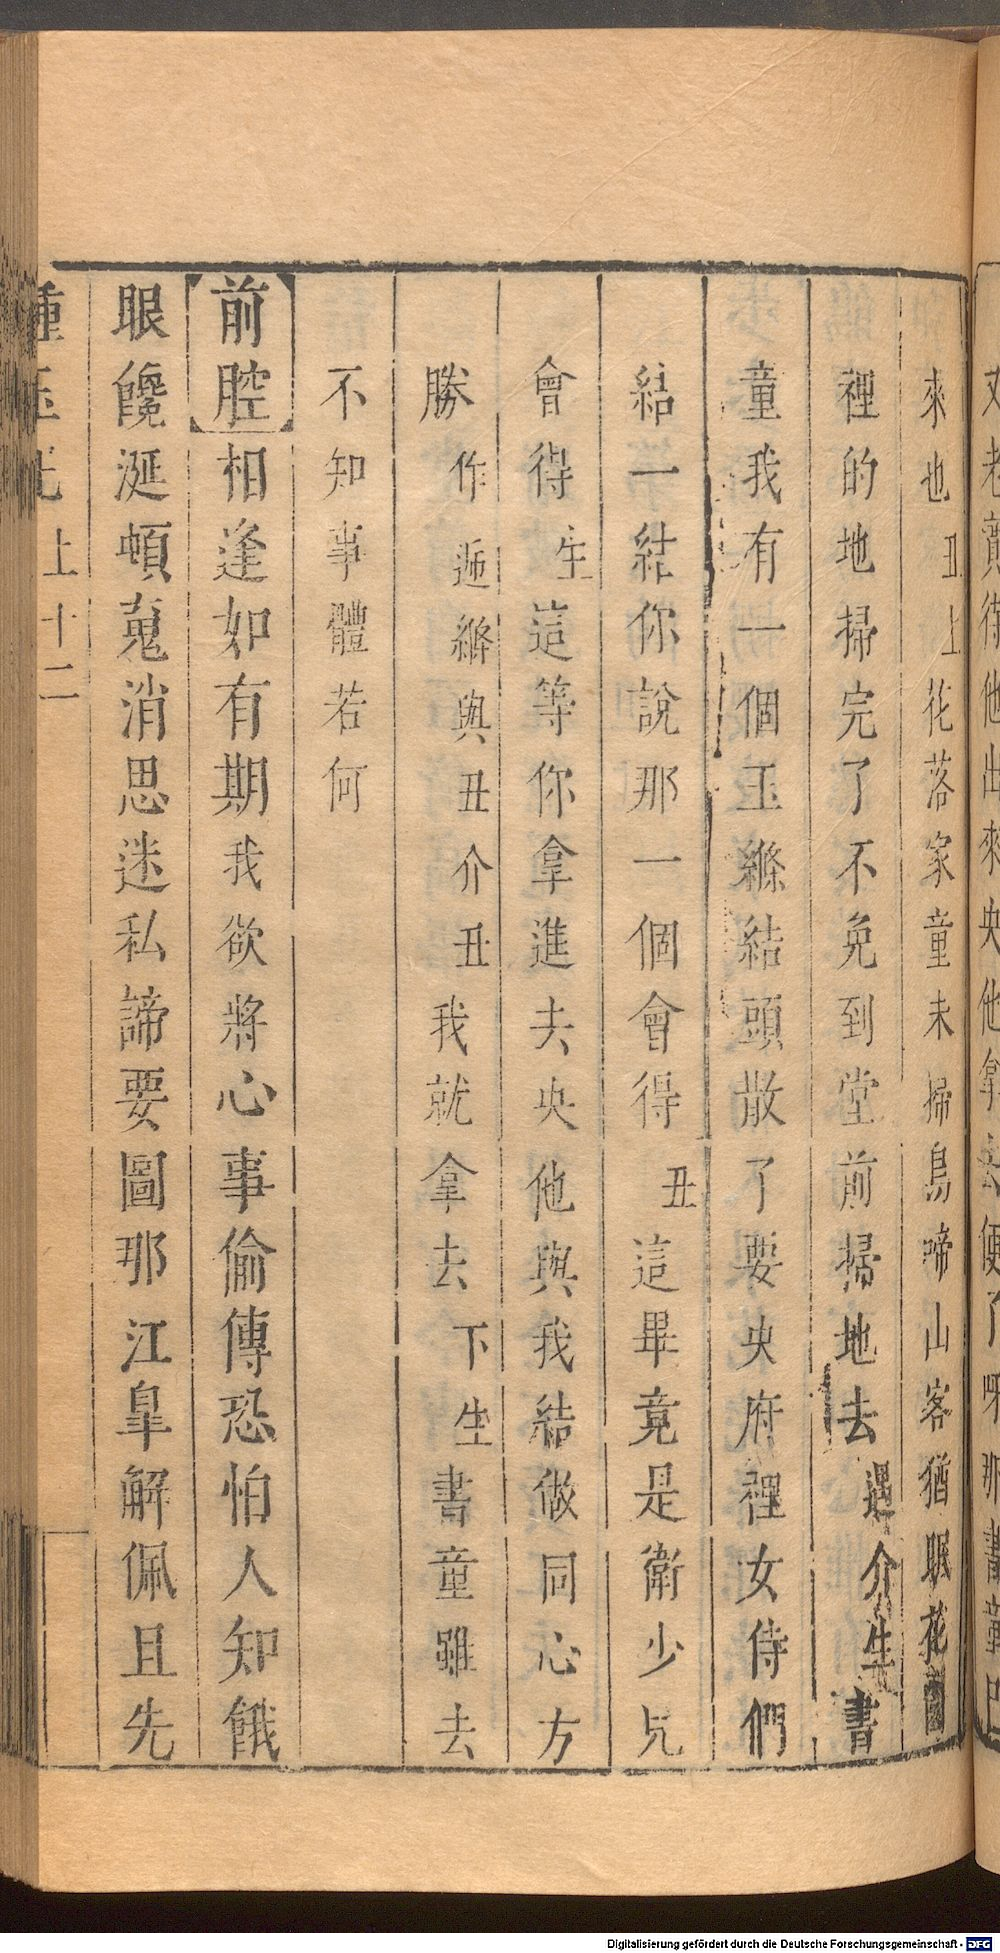 來也丑上花落家童未掃鳥啼山客猶眠花園
裡的地掃完了不免到堂前掃地去遇介生書
童我有一個玉縧結頭散了要央府裡女侍們
結一結你說那一個會得丑這畢竟是衛少兄
會得生這等你拿進去央他與我結做同心方
勝作遞縧與丑介丑我就拿去下生書童雖去
不知事體若何
前腔相逢如有期我欲將心事偷傳恐怕人知餓
眼饞涎頓蒐消思迷私諦要圖那江臯解佩且先
種玉記上十二
Digitalisierung gefördert durch die Deutsche Forschungsgemeinschaft - DFG